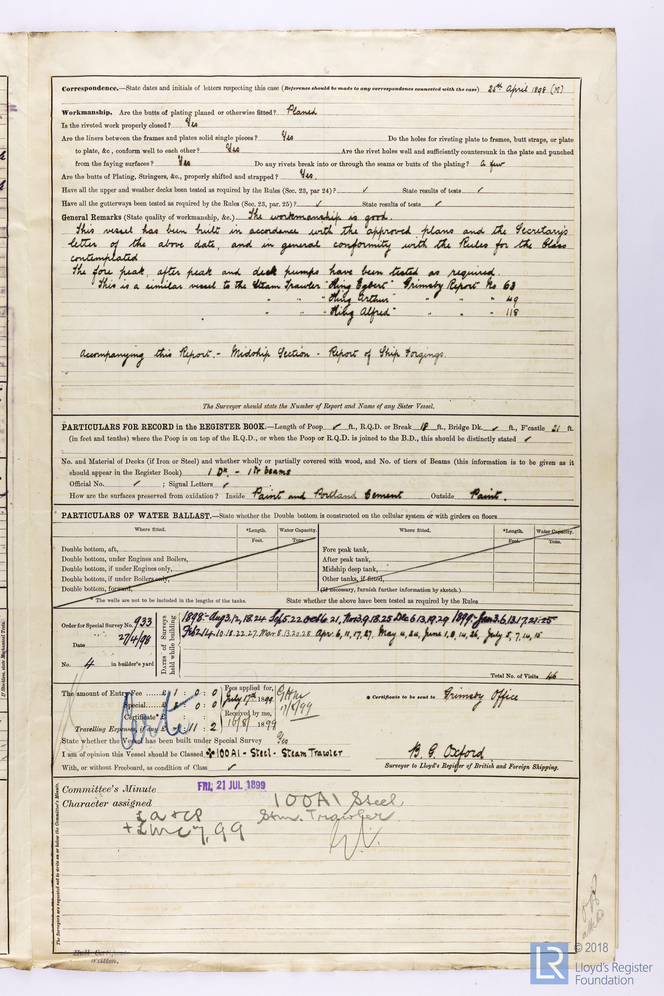 Correspondence.—State dates and initials of letters respecting this case (Reference should be made to any correspondence connected with the case) 26th April 1898 (M)
Workmanship. Are the butts of plating planed or otherwise fitted? Planed
Is the riveted work properly closed? Yes
Are the liners between the frames and plates solid single pieces? Yes Do the holes for riveting plate to frames, butt straps, or plate
to plate, &c., conform well to each other? Yes Are the rivet holes well and sufficiently countersunk in the plate and punched
from the faying surfaces? Yes Do any rivets break into or through the seams or butts of the plating? a few
Are the butts of Plating, Stringers, &c., properly shifted and strapped? Yes.
Have all the upper and weather decks been tested as required by the Rules (Sec. 23, par 24)? ✓ State results of tests ✓
Have all the gutterways been tested as required by the Rules (Sec. 23, par. 25)? ✓ State results of tests ✓
General Remarks (State quality of workmanship, &c.) The workmanship is good.
This vessel has been built in accordance with the approved plans and the Secretary's
letter of the above date, and in general conformity with the Rules for the Class
contemplated
The fore peak, after peak and deck pumps have been tested as required.
This is a similar vessel to the Steam Trawler "King Egbert" Grimsby Report No 63
" " "King Arthur" " " " 49
" " "King Alfred" " " " 118
Accompanying this Report - Midship Section - Report of Ship Forgings.
The Surveyor should state the Number of Report and Name of any Sister Vessel.
PARTICULARS FOR RECORD in the REGISTER BOOK.—Length of Poop ✓ ft., R.Q.D. or Break 18 ft., Bridge Dk. ✓ ft., F'castle 21 ft.
(in feet and tenths) where the Poop is on top of the R.Q.D., or when the Poop or R.Q.D. is joined to the B.D., this should be distinctly stated ✓
No. and Material of Decks (if Iron or Steel) and whether wholly or partially covered with wood, and No. of tiers of Beams (this information is to be given as it
should appear in the Register Book) 1 Dk - 1 Tr beams
Official No. ✓ ; Signal Letters ✓
How are the surfaces preserved from oxidation? Inside Paint and Portland Cement Outside Paint.
PARTICULARS OF WATER BALLAST.—State whether the Double bottom is constructed on the cellular system or with girders on floors
Where fitted. *Length. Water Capacity. Where fitted. *Length. Water Capacity.
Feet. Tons. Feet. Tons.
Double bottom, aft, Fore peak tank,
Double bottom, under Engines and Boilers, After peak tank,
Double bottom, if under Engines only, Midship deep tank,
Double bottom, if under Boilers only, Other tanks, if fitted,
Double bottom, forward, (If necessary, furnish further information by sketch.)
* The wells are not to be included in the lengths of the tanks. State whether the above have been tested as required by the Rules
Order for Special Survey No. 933
Date 27/4/98
No. 4 in builder's yard
DATES of Surveys held while building
1898:- Aug 3,12,18,24
Feb 2,14,10,18,22,27. Mar 8,13,20,28 Apr. 6,11,17,27. May 4,24, June 1,8,14,26, July 5,7,14,15
Total No. of Visits 46
The amount of Entry Fee ... £ : 0 : 0
Special ... £ : 0 : 0
Certificate* £ :
Travelling Expenses £ : 11 : 2
Fees applied for,
July 17th 1899
Received by me,
10/8/1899
* Certificate to be sent to Grimsby Office
State whether the Vessel has been built under Special Survey Yes
I am of opinion this Vessel should be Classed ✠100A1 - Steel - Steam Trawler
With, or without Freeboard, as condition of Class ✓
B G Oxford
Surveyor to Lloyd's Register of British and Foreign Shipping.
Committee's Minute FRI. 21 JUL 1899
Character assigned 100A1 Steel
Stm. Trawler
+LMC 7,99
The Surveyors are requested not to write on or below the Committee's Minute.
Hull Certificate
Written.
LR
© 2018
Lloyd's Register
Foundation